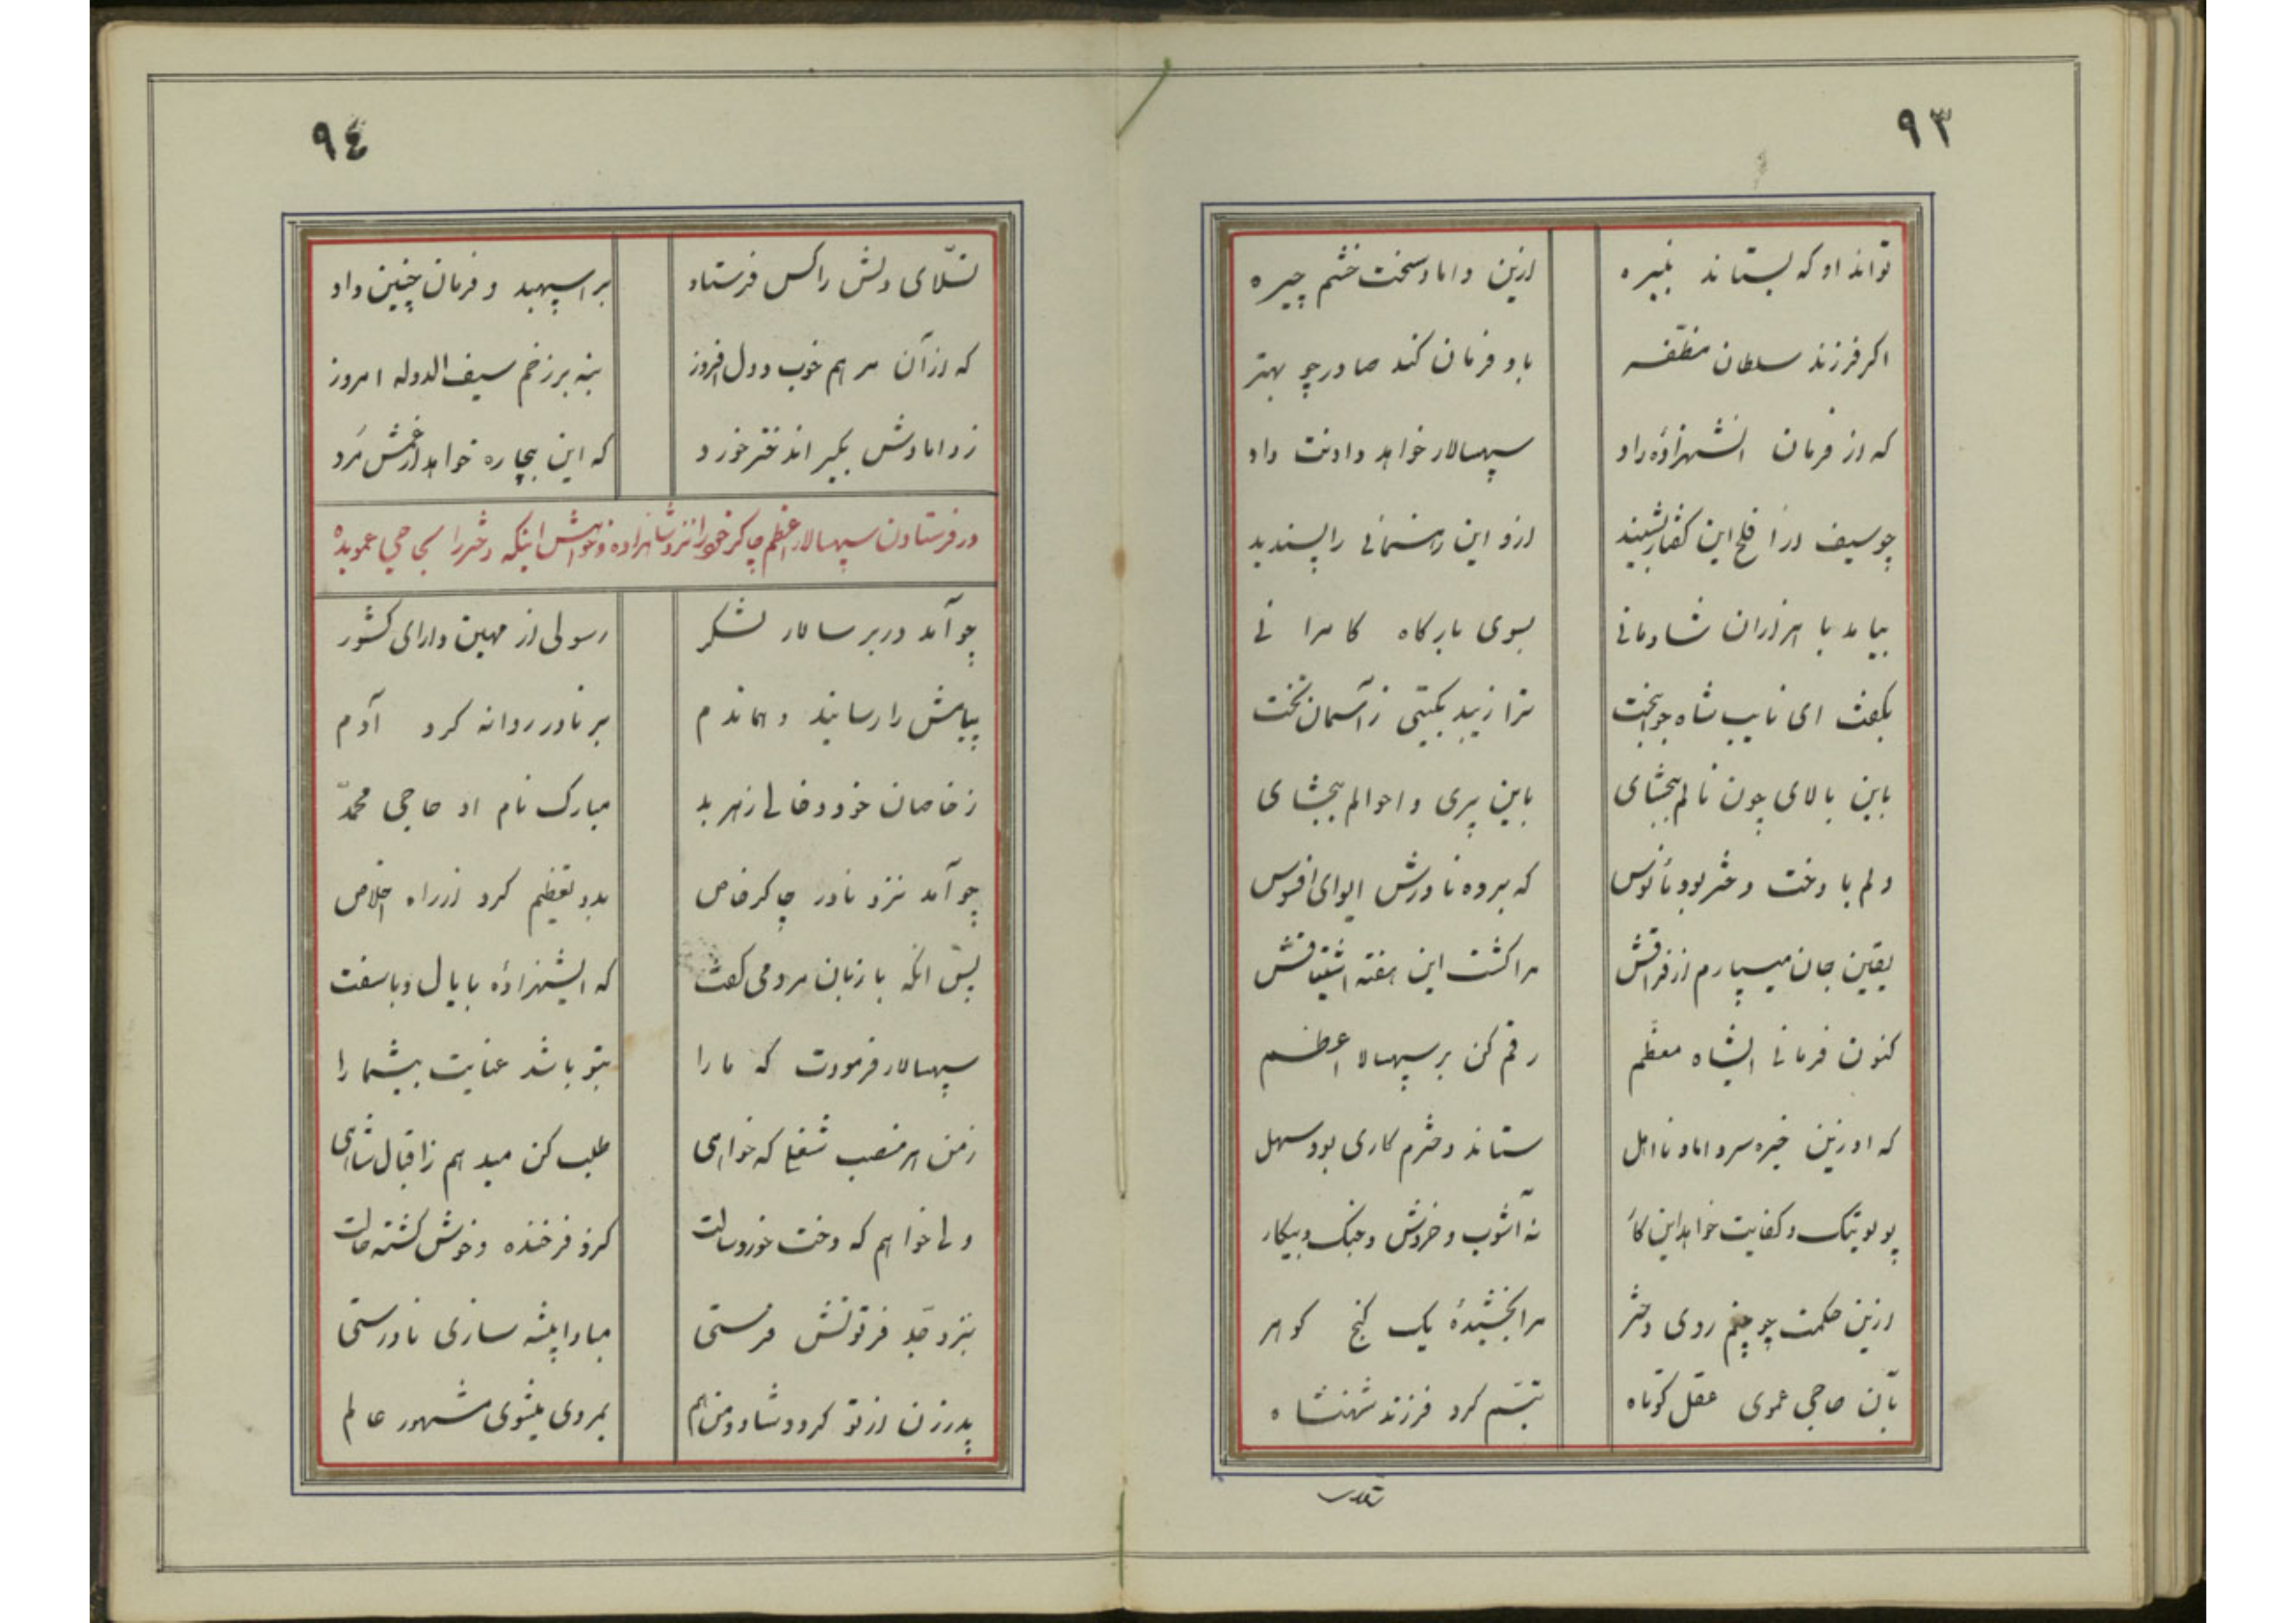 ۹۳
تواند او که بستاند نبیره ازین داماد سخت خشم چیره
اگر فرزند سلطان مظفر باو فرمان کند صادر چو بهتر
که از فرمان آنشهزاده راد سپهسالار خواهد دادنت داد
چو سیف از آفلح این گفتار بشنید ازو این رهنمائی را پسندید
بیامد با هزاران شادمانی بسوی بارگاه کامرانی
بگفت ای نایب شاه جوانبخت ترا زیبد بگیتی ز آسمان تخت
باین بالای چون نالم ببخشای باین پیری و احوالم ببخشای
دلم با دخت دختر بود مأنوس که برده نادرش ایوای افسوس
یقین جان میسپارم از فراقش مرا کشت این هفته اشتیاقش
کنون فرمانی ایشاه معظم رقم کن بر سپهسالا اعظم
که او زین خیره سر داماد نااهل ستاند دخترم کاری بود سهل
پولوتیک و کفایت خواهد این کار نه آشوب و خروش و جنگ و پیکار
ازین حکمت چو بینم روی دختر مرا بخشیدهٔ یک گنج گوهر
بآن حاجی عموی عقل کوتاه تبسّم کرد فرزند شهنشاه
۹٤
تسلّای دلش را کس فرستاد بر اسپهبد و فرمان چنین داد
که از آن مرهم خوب و دل افروز بنه بر زخم سیف الدوله امروز
ز دامادش بگیر اندختر خورد که این بیچاره خواهد از غمش مُرد
در فرستادن سپهسالار اعظم چاکر خود را نزد شاهزاده و خواهش اینکه دختر را بحاجی عمو بده
چو آمد در بر سالار لشکر رسولی از مهین دارای کشور
پیامش را رسانید و هماندم بر نادر روانه کرد آدم
ز خاصان خود و خالی ز هر بد مبارک نام او حاجی محمّد
چو آمد نزد نادر چاکر خاص بدو تعظیم کرد از راه اخلاص
پس آنگه با زبان مردمی گفت که ایشهزادهٔ با یال و با سفت
سپهسالار فرمودت که ما را بتو باشد عنایت بیشمارا
ز من هر منصب شغلی که خواهی طلب کن میدهم ز اقبال شاهی
ولی خواهم که دخت خورد سالت کزو فرخنده و خوش گشته حالت
بنزد جدّ فرتوتش فرستی مبادا پیشه سازی نادرستی
پدرزن از تو گردد شاد و من هم بمردی میشوی مشهور عالم